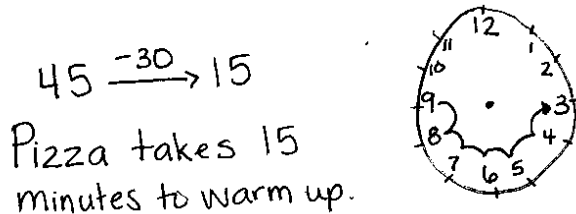 45 -30 → 15
Pizza takes 15
minutes to warm up.
12
1
2
3
4
5
6
7
8
9
10
11